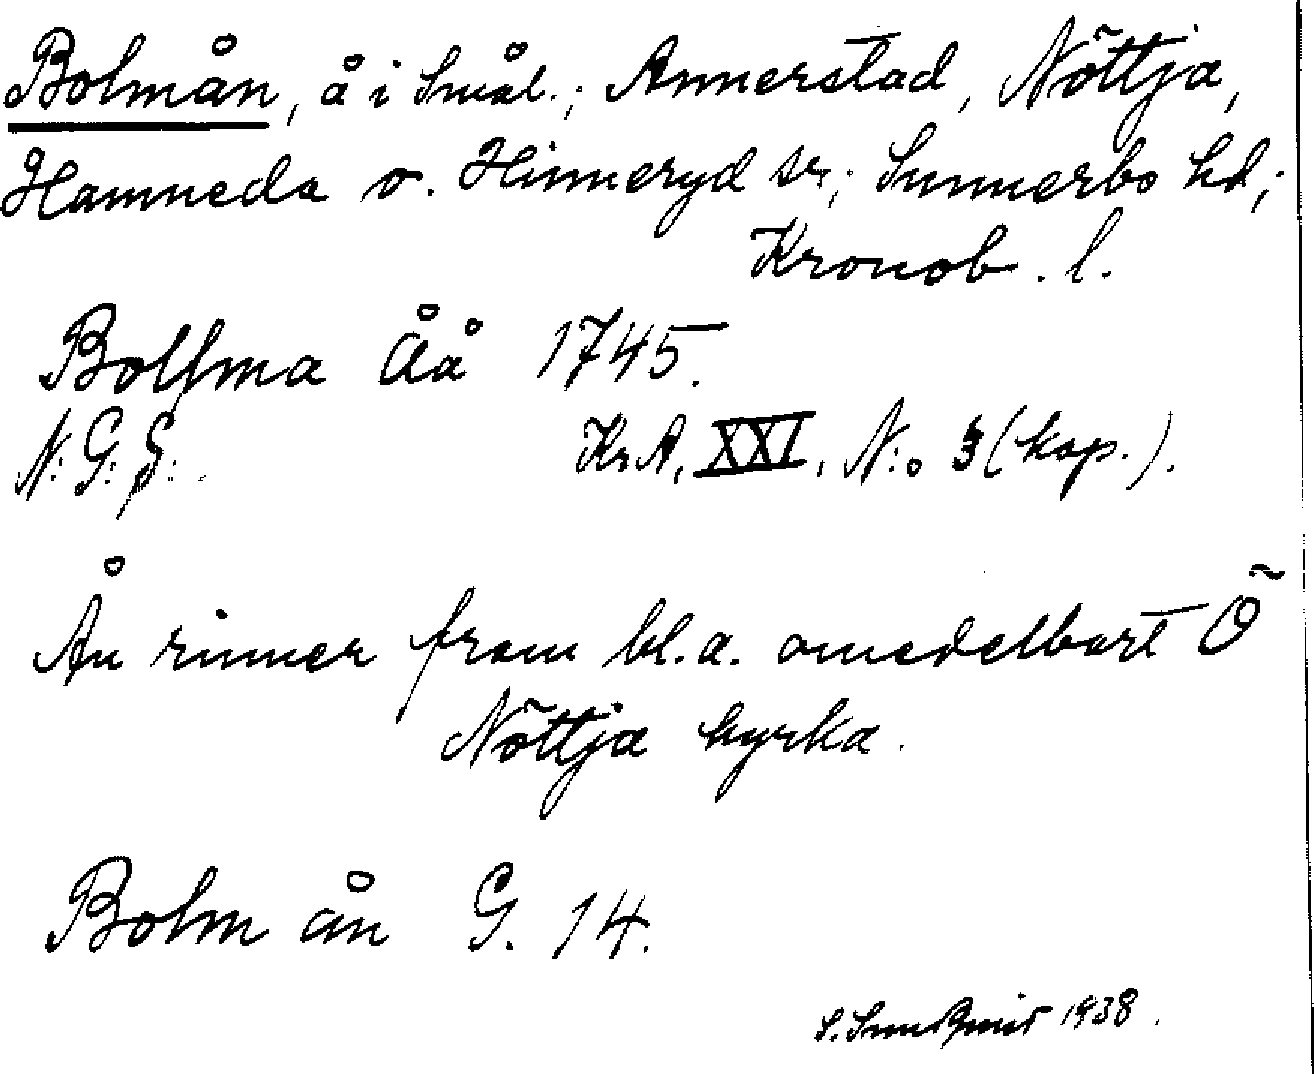 Bolmån, å i Smål.; Annerstad, Nöttja,
Hamneda o. Hinneryd sr; Sunnerbo hd;
Kronob. l.
Bollma Åå 1745.
N: G: S: KrA, XXI, N:o 3 (kop.).
Ån rinner fram bl.a. omedelbart Ö
Nöttja kyrka.
Bolm ån G. 14.
S. Sundqvist 1938.